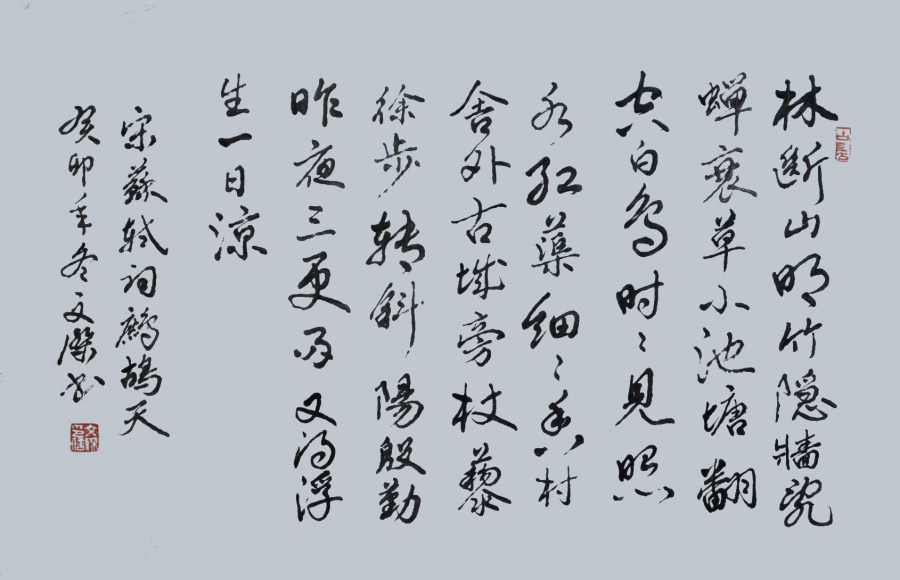 林斷山明竹隐牆亂
蟬衰草小池塘翻
空白鳥时〻見照
水红蕖细〻香村
舍外古城旁杖藜
徐步转斜陽殷勤
昨夜三更雨又得浮
生一日涼
宋蘇轼词鹧鸪天
癸卯年冬文傑书